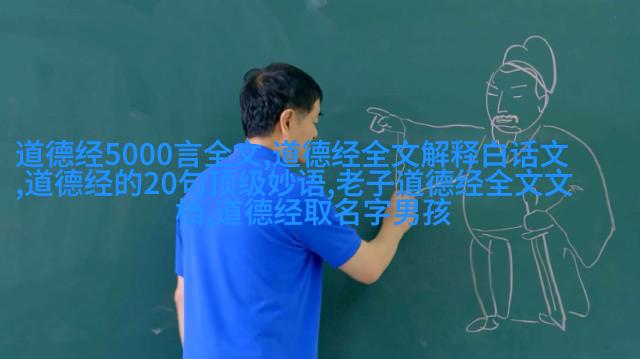 道德经5000言全文,道德经全文解释白话文
,道德经的20句顶级妙语,老子道德经全文文
档,道德经取名字男孩